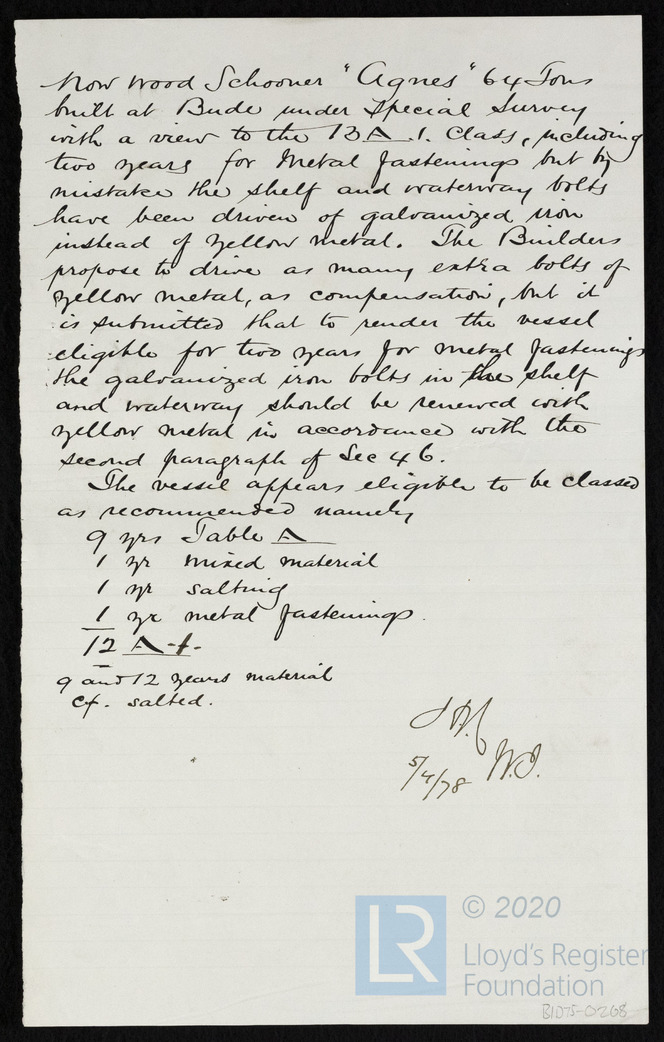 Now Wood Schooner "Agnes" 64 Tons
built at Bude under Special Survey
with a view to the 13 A 1. Class, including
two years for Metal fastenings but by
mistake the shelf and waterway bolts
have been driven of galvanized iron
instead of yellow metal. The Builders
propose to drive as many extra bolts of
yellow metal, as compensation, but it
is submitted that to render the vessel
eligible for two years for metal fastenings
the galvanized iron bolts in the shelf
and waterway should be renewed with
yellow metal in accordance with the
second paragraph of Sec 46.
The vessel appears eligible to be classed
as recommended namely
9 yrs Table A
1 yr mixed material
1 yr salting
1 yr metal fastenings.
12 A-1-
9 and 12 years material
cf. salted.
5/4/78 W.I.
LR
© 2020
Lloyd's Register
Foundation
BID75-0268